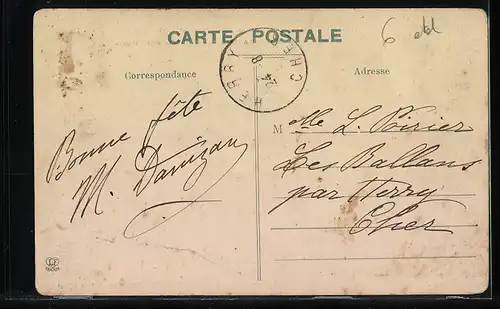 CARTE POSTALE
6
HERRY CHER
8
24
Correspondance
Adresse
Bonne fête
M.
Mlle L. Poirier
Les Ballans
par Herry
Cher